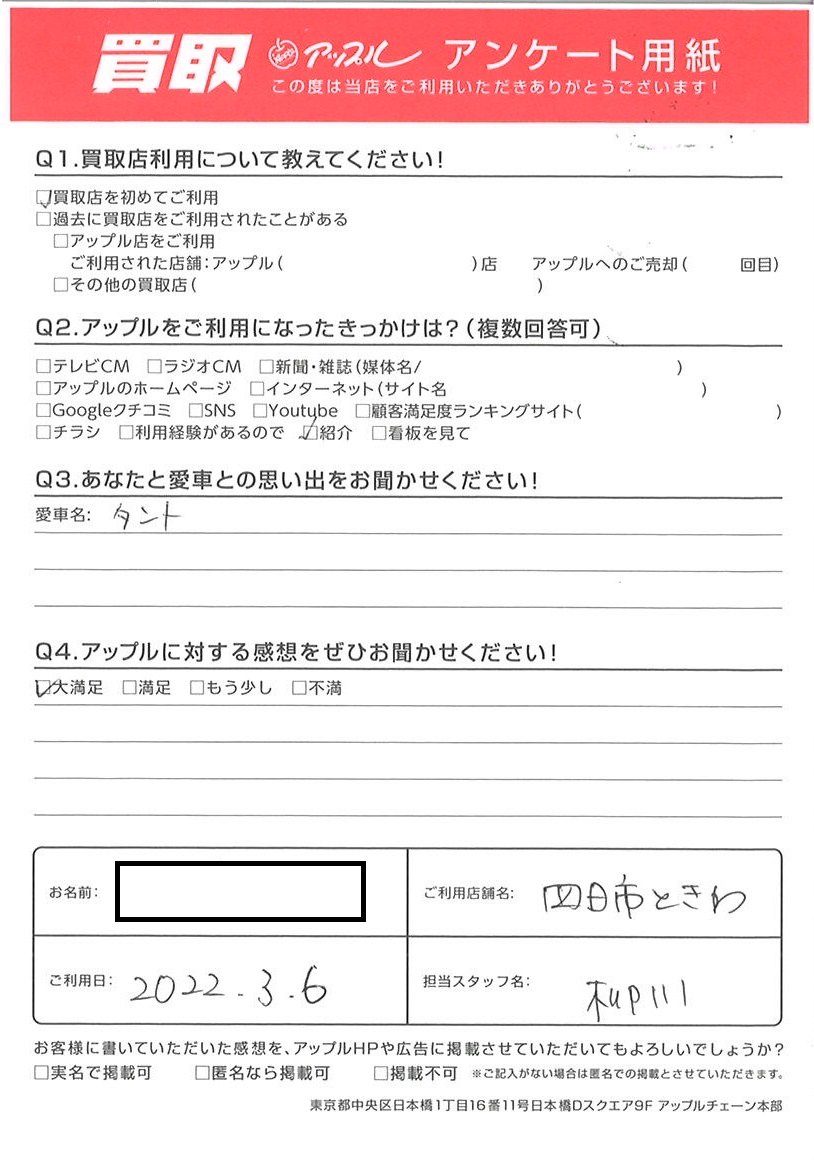 買取 アップル アンケート用紙
この度は当店をご利用いただきありがとうございます!
Q1.買取店利用について教えてください!
☑買取店を初めてご利用
□過去に買取店をご利用されたことがある
□アップル店をご利用
ご利用された店舗:アップル( )店 アップルへのご売却( 回目)
□その他の買取店( )
Q2.アップルをご利用になったきっかけは?(複数回答可)
□テレビCM □ラジオCM □新聞・雑誌(媒体名/ )
□アップルのホームページ □インターネット(サイト名 )
□Googleクチコミ □SNS □Youtube □顧客満足度ランキングサイト( )
□チラシ □利用経験があるので ☑紹介 □看板を見て
Q3.あなたと愛車との思い出をお聞かせください!
愛車名: タント
Q4.アップルに対する感想をぜひお聞かせください!
☑大満足 □満足 □もう少し □不満
お名前:
ご利用店舗名: 四日市ときわ
ご利用日: 2022.3.6
担当スタッフ名:
お客様に書いていただいた感想を、アップルHPや広告に掲載させていただいてもよろしいでしょうか?
□実名で掲載可 □匿名なら掲載可 □掲載不可 ※ご記入がない場合は匿名での掲載とさせていただきます。
東京都中央区日本橋1丁目16番11号日本橋Dスクエア9F アップルチェーン本部